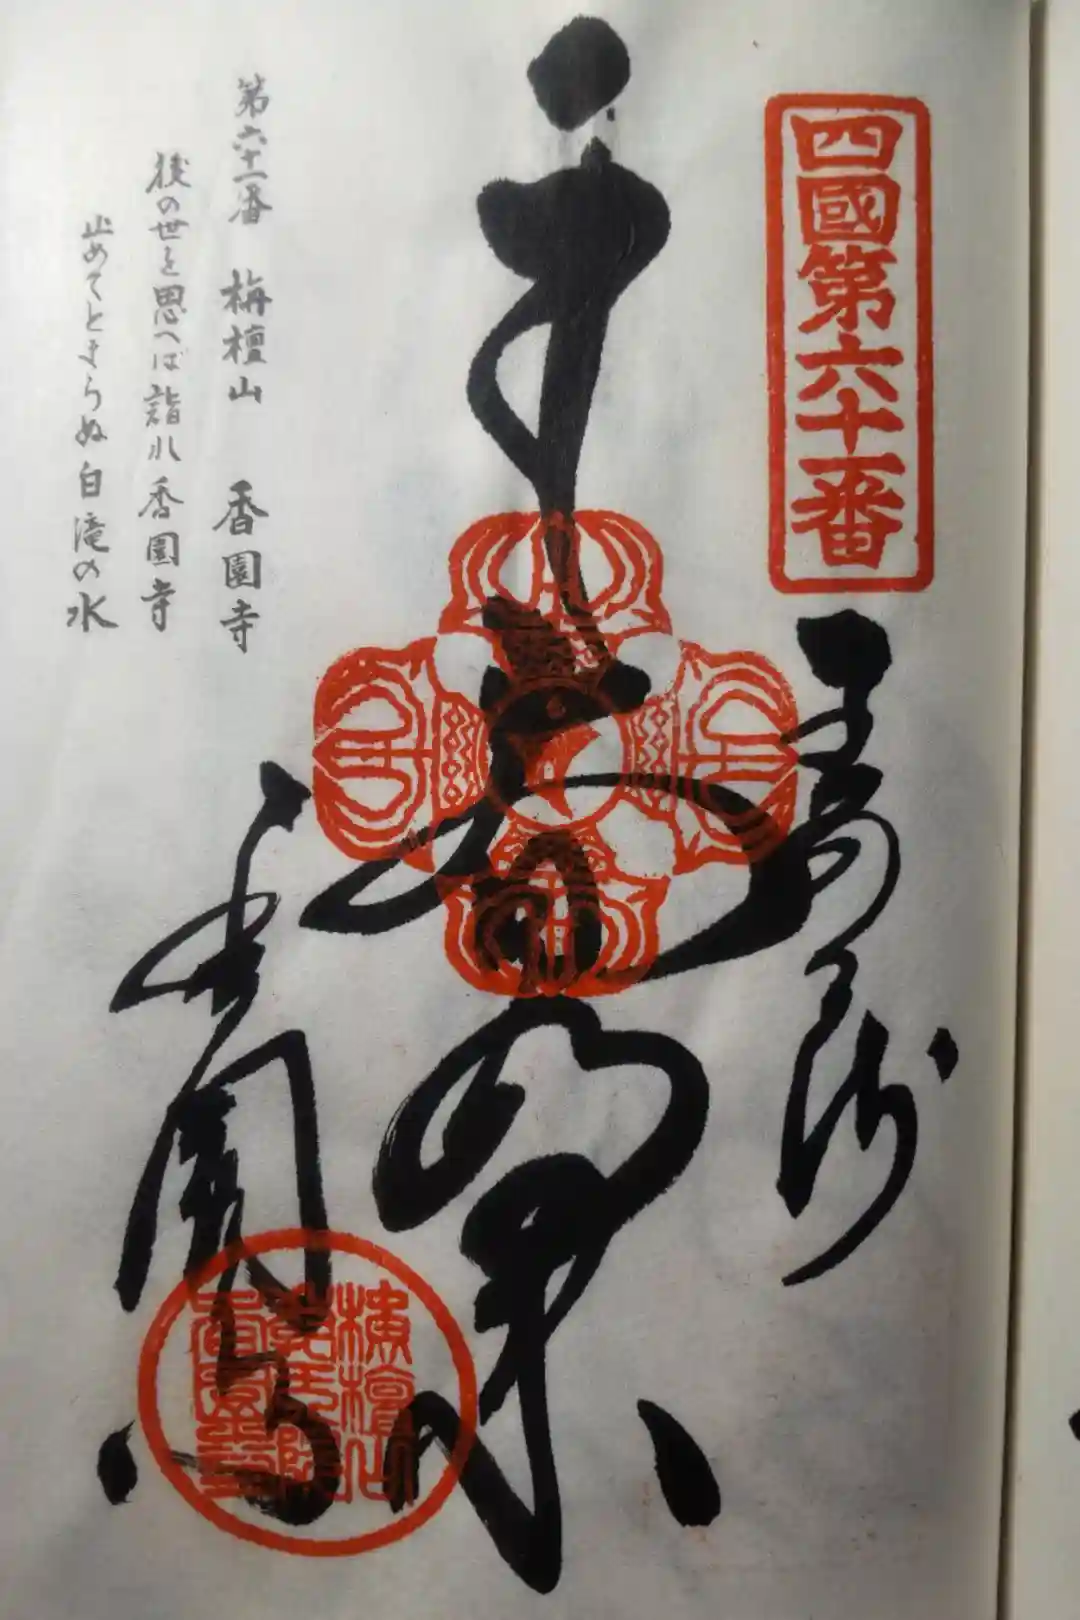 四國第六十一番
奉拝
大日如来
香園寺
第六十一番 栴檀山 香園寺
後の世を思へば詣れ香園寺
止めてとまらぬ白滝の水